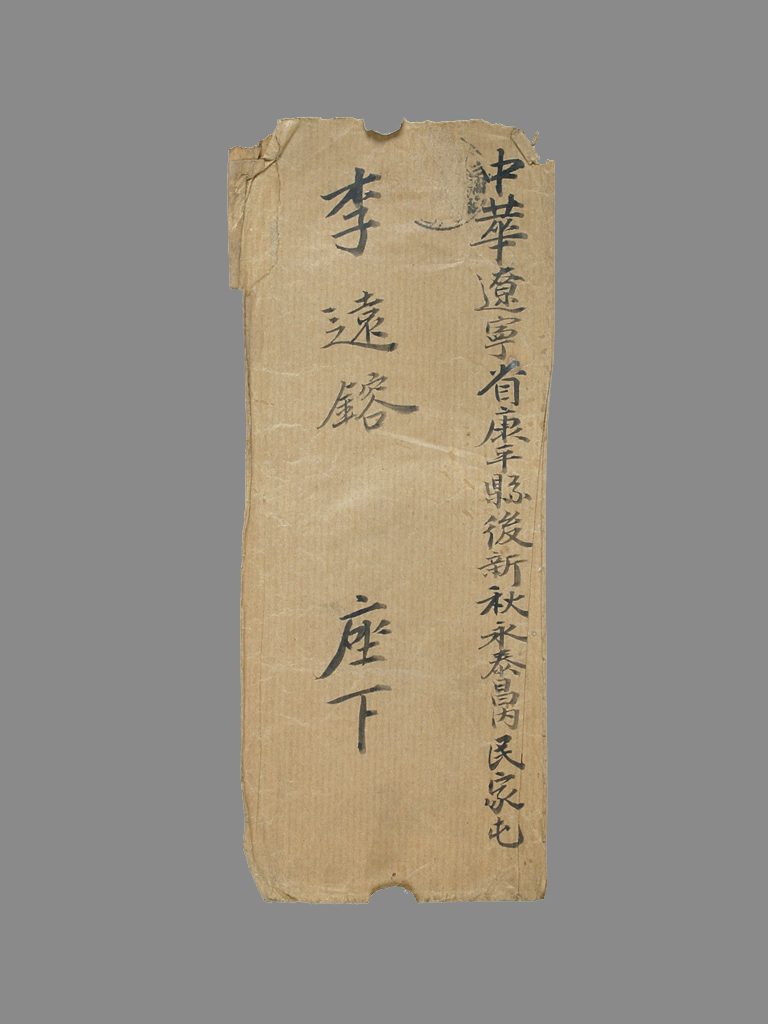 中華遼寧省康平縣後新秋永泰昌內民家屯
李遠鎔 座下